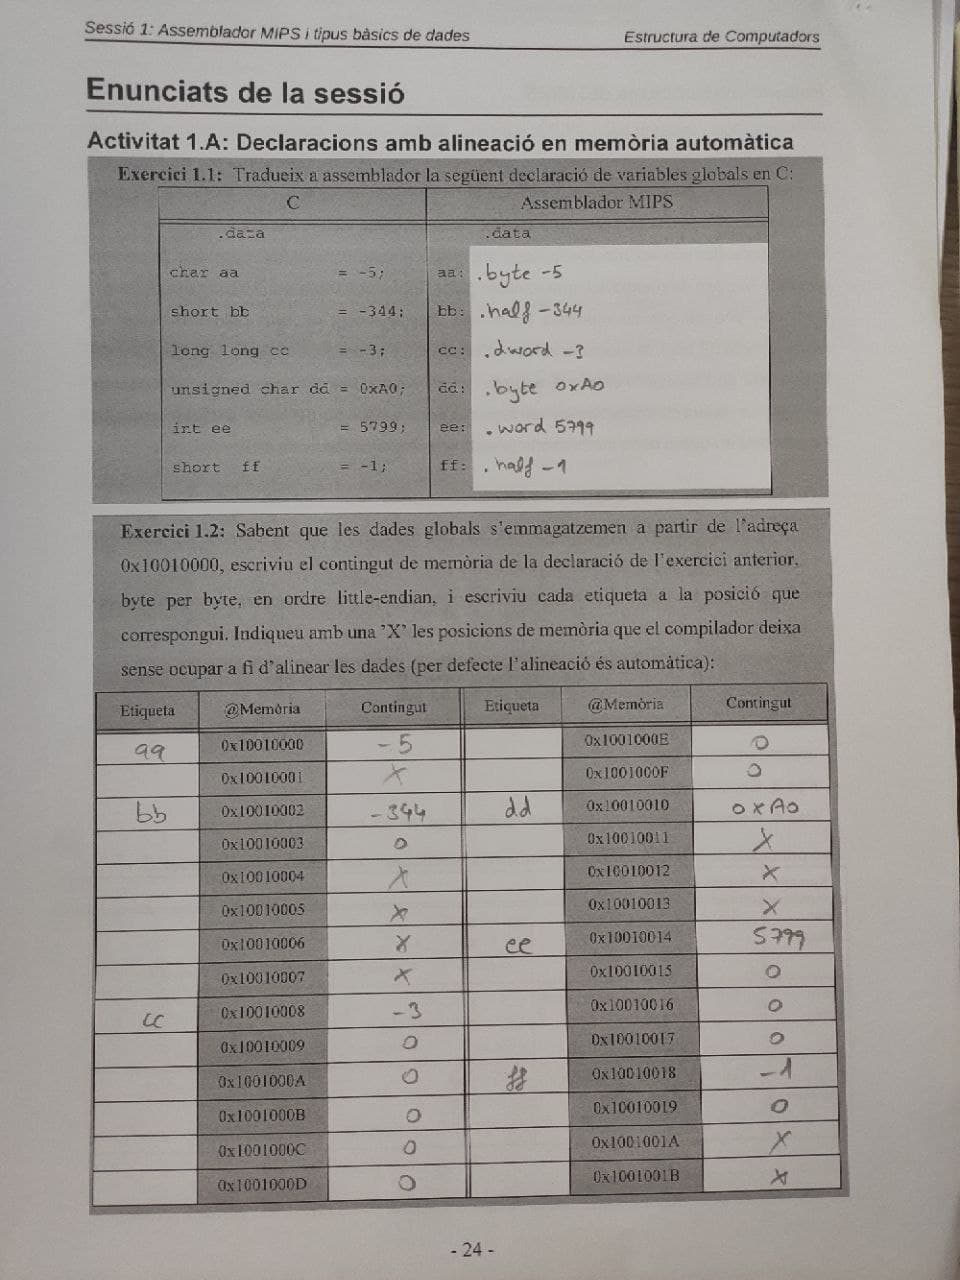 Sessió 1: Assemblador MIPS i tipus bàsics de dades Estructura de Computadors
Enunciats de la sessió
Activitat 1.A: Declaracions amb alineació en memòria automàtica
Exercici 1.1: Tradueix a assemblador la següent declaració de variables globals en C:
C Assemblador MIPS
.data .data
char aa = -5; aa: .byte -5
short bb = -344; bb: .half -344
long long cc = -3; cc: .dword -3
unsigned char dd = 0xA0; dd: .byte 0xA0
int ee = 5799; ee: .word 5799
short ff = -1; ff: .half -1
Exercici 1.2: Sabent que les dades globals s'emmagatzemen a partir de l'adreça
0x10010000, escriviu el contingut de memòria de la declaració de l'exercici anterior,
byte per byte, en ordre little-endian, i escriviu cada etiqueta a la posició que
correspongui. Indiqueu amb una 'X' les posicions de memòria que el compilador deixa
sense ocupar a fi d'alinear les dades (per defecte l'alineació és automàtica):
Etiqueta @Memòria Contingut Etiqueta @Memòria Contingut
aa 0x10010000 -5 0x1001000E 0
0x10010001 X 0x1001000F 0
bb 0x10010002 -344 dd 0x10010010 0xA0
0x10010003 0 0x10010011 X
0x10010004 X 0x10010012 X
0x10010005 X 0x10010013 X
0x10010006 X ee 0x10010014 5799
0x10010007 X 0x10010015 0
cc 0x10010008 -3 0x10010016 0
0x10010009 0 0x10010017 0
0x1001000A 0 ff 0x10010018 -1
0x1001000B 0 0x10010019 0
0x1001000C 0 0x1001001A X
0x1001000D 0 0x1001001B X
- 24 -